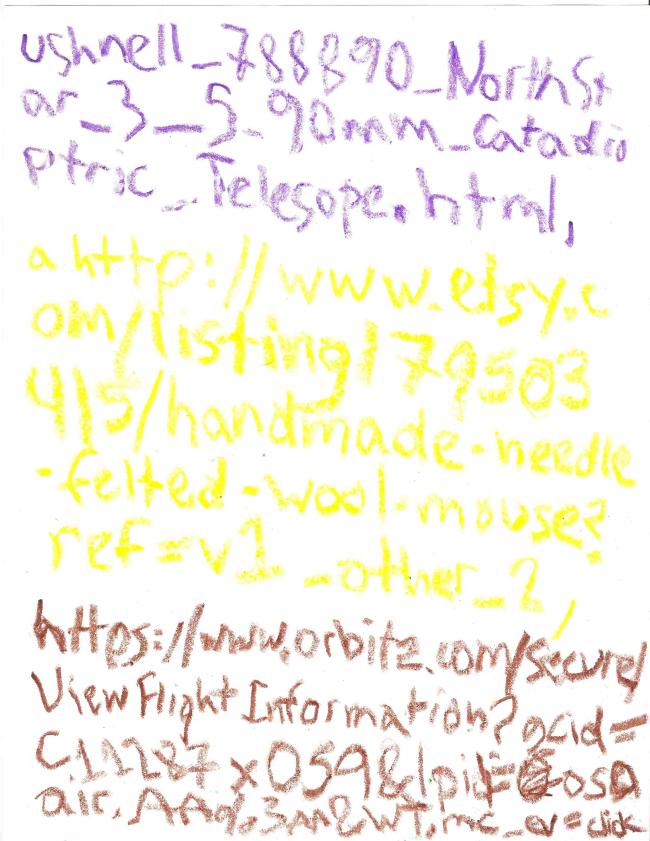 ushnell_788890_NorthSt
ar_3_5_90mm_Catadio
ptric_Telesope.html,
a http://www.etsy.c
om/listing/179503
415/handmade-needle
-felted-wool-mouse?
ref=v1_other_2,
https://www.orbitz.com/Secure/
ViewFlightInformation?gcid=
C11287x059&lpid=
air.AA%3AA&WT.mc_ev=click